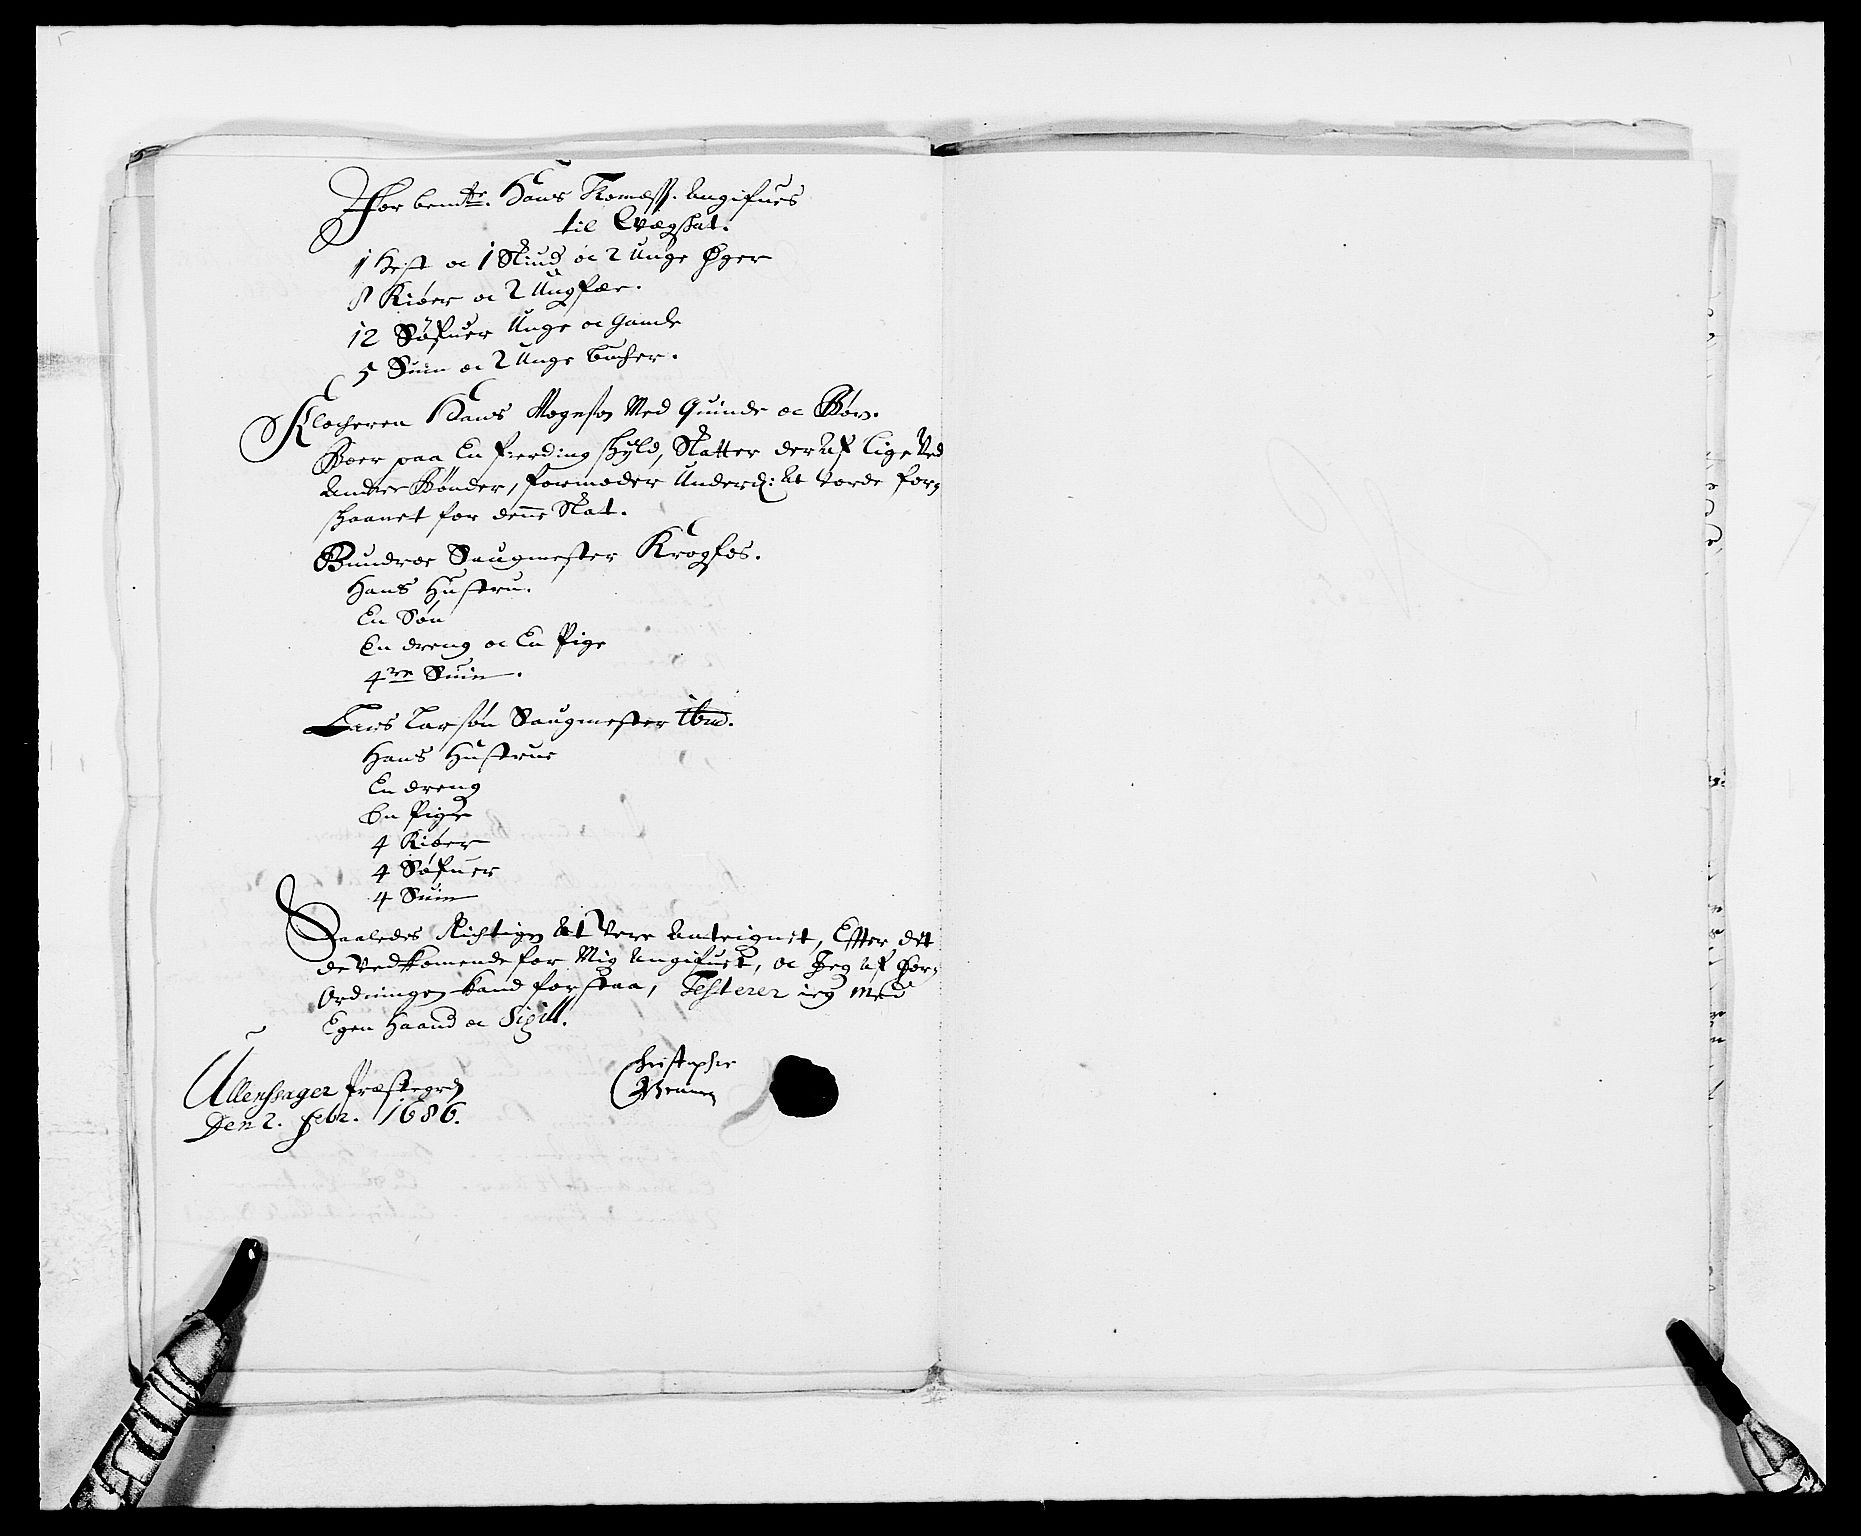 For bemte. Hans Thomess. Angifues
til Qvægskat.
1 Hest oc 1 Stiud oc 2 Unge Øger
8 Kiøer oc 2 Ungfæe.
12 Søfuer Unge oc Gamle
5 Suin oc 2 Unge bucher.
Klocheren Hans Mogensøn Med Quinde oc Børn.
Boer paa En fierding skyld, Skatter der Af lige Ved
Andre Bønder, formoder Underd: At vorde for¬
skaanet for denne Skat.
Saugmester Krogfos.
Hans Hustru.
En Søn
En dreng oc En Pige
4re Suin.
Lars Larsøn Saugmester ibid.
Hans Hustrue
En dreng
En Pige
4 Kiøer
4 Søfuer
4 Suin
Saaledes Richtigen At Vere Anteignet, Efter det
de Vedkomende for Mig Angifuet, oc Jeg Af For¬
Ordningen kand forstaa, Testerer ieg med
Egen Haand oc Sigill.
Ullensager Præstegrd
Den 2. Febr. 1686.
Christopher